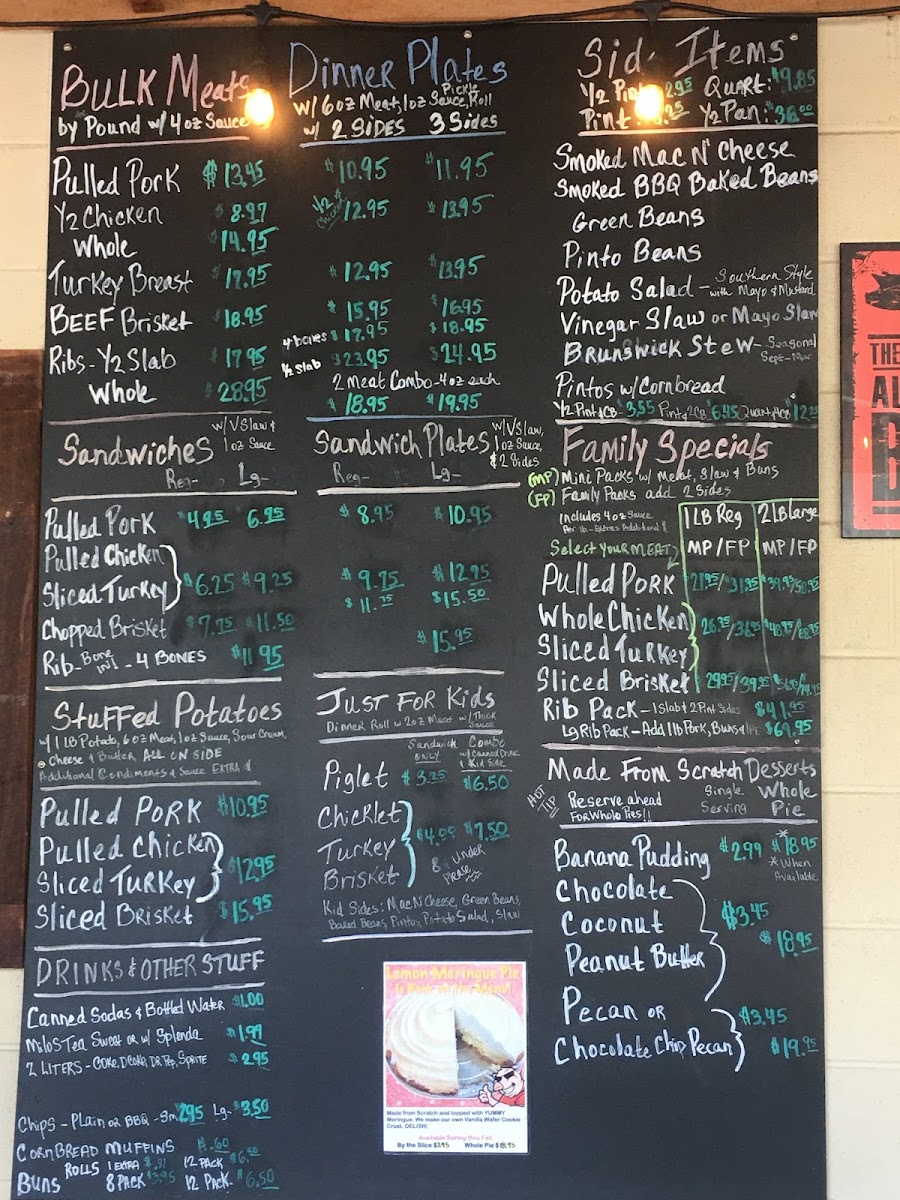 BULK Meats
by Pound w/ 4oz Sauce
Pulled Pork $13.45
1/2 Chicken $8.97
Whole $14.95
Turkey Breast $17.95
BEEF Brisket $18.95
Ribs - 1/2 Slab $17.95
Whole $28.95
Dinner Plates
w/ 6oz Meat, 1oz Sauce, Pickle, Roll
w/ 2 SIDES 3 Sides
$10.95 $11.95
1/2 Chicken $12.95 $13.95
$12.95 $13.95
$15.95 $16.95
4 bones $17.95 $18.95
1/2 Slab $23.95 $24.95
2 Meat Combo - 4oz each
$18.95 $19.95
Side Items
1/2 Pint 2.95 Quart: $9.85
Pint: Y2 Pan: $36.00
Smoked Mac N' Cheese
Smoked BBQ Baked Beans
Green Beans
Pinto Beans
Potato Salad - Southern Style with Mayo & Mustard
Vinegar Slaw or Mayo Slaw
Brunswick Stew - Seasonal Sept-Mar
Pintos w/ Cornbread
1/2 Pint & CB $3.55 Pint & 2CB $6.45 Quart
Sandwiches w/ V Slaw & 1oz Sauce
Reg- Lg-
Pulled Pork $4.95 6.95
Pulled Chicken
Sliced Turkey $6.25 $9.25
Chopped Brisket $7.75 $11.50
Rib - Bone IN! - 4 BONES $11.95
Sandwich Plates w/ V Slaw, 1oz Sauce, & 2 Sides
Reg- Lg-
$8.95 $10.95
$9.75 $12.75
$11.75 $15.50
$15.95
Family Specials
(MP) Mini Packs w/ Meat, Slaw & Buns
(FP) Family Packs add 2 Sides
includes 4oz Sauce
Per lb - Extras Additional!!
1 LB Reg 2 LB Large
Select YOUR MEAT MP/FP MP/FP
Pulled Pork 21.95/31.95
Whole Chicken
Sliced Turkey 26.95/36.95
Sliced Brisket 29.95/39.95
Rib Pack - 1 Slab & 2 Pint Sides $41.95
Lg Rib Pack - Add 1lb Pork, Buns & $64.95
Stuffed Potatoes
w/ 1 LB Potato, 6oz Meat, 1oz Sauce, Sour Cream,
Cheese & Butter ALL ON SIDE
Additional Condiments & Sauce EXTRA
Pulled Pork $10.95
Pulled Chicken
Sliced Turkey $12.95
Sliced Brisket $15.95
Just For Kids
Dinner Roll w/ 2oz Meat w/ Thick Sauce
Sandwich ONLY Combo w/ Canned Drink & Kid Side
Piglet $3.25 $6.50
Chicklet
Turkey $4.00 $7.50
Brisket
8 & Under Please
Kid Sides: Mac N Cheese, Green Beans,
Baked Beans, Pintos, Potato Salad, Slaw
Made From Scratch Desserts
HOT TIP Reserve ahead For Whole Pies!!
Single Serving Whole Pie
Banana Pudding $2.99 *$18.95
*When Available
Chocolate
Coconut $3.45
Peanut Butter $18.95
Pecan or $3.45
Chocolate Chip Pecan $19.95
DRINKS & OTHER STUFF
Canned Sodas & Bottled Water $1.00
Milo's Tea Sweet or w/ Splenda $1.99
2 LITERS - COKE, D.COKE, DR Pep, SPRITE $2.95
Chips - Plain or BBQ - Sm 2.95 Lg- $3.50
CORNBREAD MUFFINS .60
ROLLS 1 EXTRA 12 PACK $6.50
Buns 8 PACK $3.95 12 PACK $6.50
Lemon Meringue Pie
Is Back on the Menu!
Made from Scratch and topped with YUMMY
Meringue. We make our own Vanilla Wafer Cookie
Crust. DELISH!
Available Spring thru Fall
By the Slice $3.45 Whole Pie $18.95
THE
AL
B